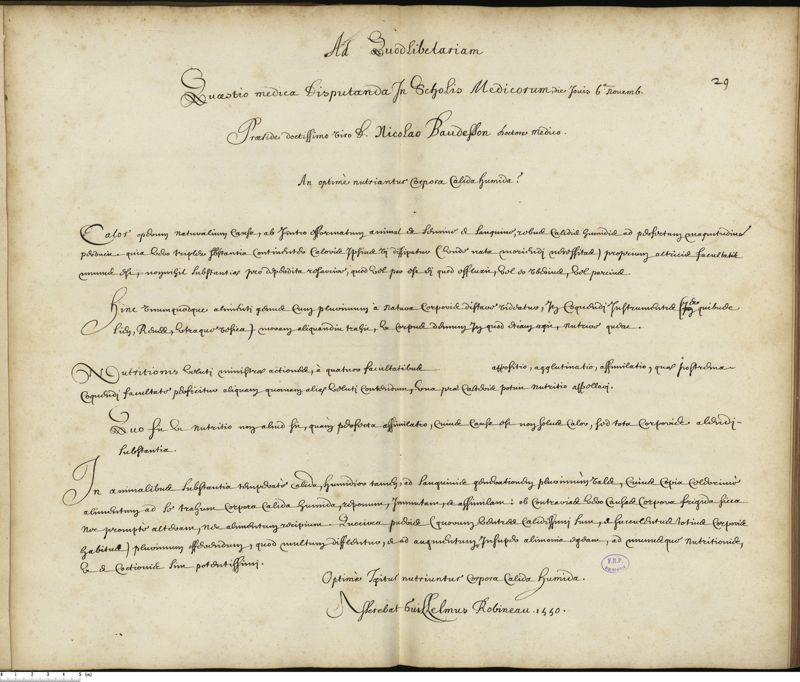 Ad Quodlibetariam
29
Quæstio medica Disputanda In Scholis Medicorum die Jovis 6ª novemb.
Præside doctissimo viro D. Nicolao Baudesson doctore medico.
An optimè nutriantur Corpora Calida humida?
Calor operum naturalium Causa, ab Initio efformatum animal e semine et sanguine, rebus Calidis humidis ad perfectam magnitudinem
perducit. quia vero triplex substantia Continenter Caloris Ipsius vi dissipatur (unde nata moriendi necessitas) proprium altricis facultatis
munus est, nonnihil substantiæ pro deperdita resarcire, quod vel par est ei quod effluxit, vel eo uberius, vel parcius.
Hinc unumquodque alimenti genus Cum plurimum à natura Corporis distare videatur, In Coquendi Instrumentis
lien, Renes, utraque vesica) moram aliquandiu trahit, ut corpus demum In quod etiam agit, nutrire queat.
Nutritionis veluti ministræ actiones, à quatuor facultatibus appositio, agglutinatio, assimilatio, quas postrema
Coquendi facultate proficitur aliquam quoniam aliæ veluti contendunt, una præ Cæteris potius nutritio appellari.
Quo fit ut nutritio non aliud sit, quàm perfecta assimilatio, Cuius Causa est non solus Calor, sed tota Corporis alendi
substantia.
In animalibus substantia temperatè calida, humidior tamen, ad sanguinis generationem plurimùm valet, Cuius Copia
alimentum ad se trahunt Corpora Calida humida, reponunt, Immutant, et assimilant: ob Contrarias vero Causas Corpora frigida sicca
nec promptè alterant, nec alimentum recipiunt. Quocirca pueri (quorum ventres Calidissimi sunt, et succulentus totius Corporis
habitus) plurimum efferendum, quod multum difflentur, et ad augmentum Insuper alimonia egeant, ad munusque Nutritionis,
ut et Coctionis sint potentissimi.
Optimè Igitur nutriuntur Corpora Calida humida.
Asserebat Guillelmus Robineau. 1550.
F.M.P.